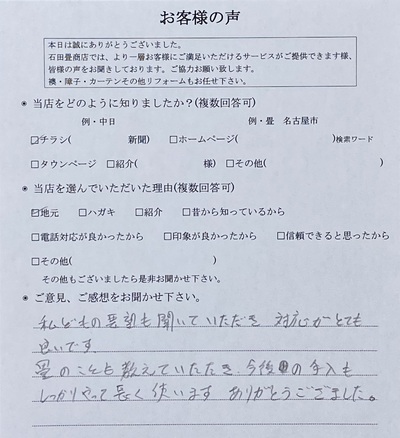 お客様の声
本日は誠にありがとうございました。
石田畳商店では、より一層お客様にご満足いただけるサービスがご提供できます様、
皆様の声をお聞きしております。ご協力お願い致します。
襖・障子・カーテンその他リフォームもお任せ下さい。
◉ 当店をどのように知りましたか？(複数回答可)
例・中日 例・畳 名古屋市
☑チラシ( 新聞) □ホームページ( )検索ワード
□タウンページ □紹介( 様) □その他( )
◉ 当店を選んでいただいた理由(複数回答可)
☑地元 □ハガキ □紹介 □昔から知っているから
□電話対応が良かったから □印象が良かったから □信頼できると思ったから
□その他( )
その他もございましたら是非お聞かせ下さい。
◉ ご意見、ご感想をお聞かせ下さい。
私どもの要望も聞いていただき 対応がとても
良いです。
畳のことも教えていただき、今後の手入も
しっかりやって長く使います ありがとうございました。